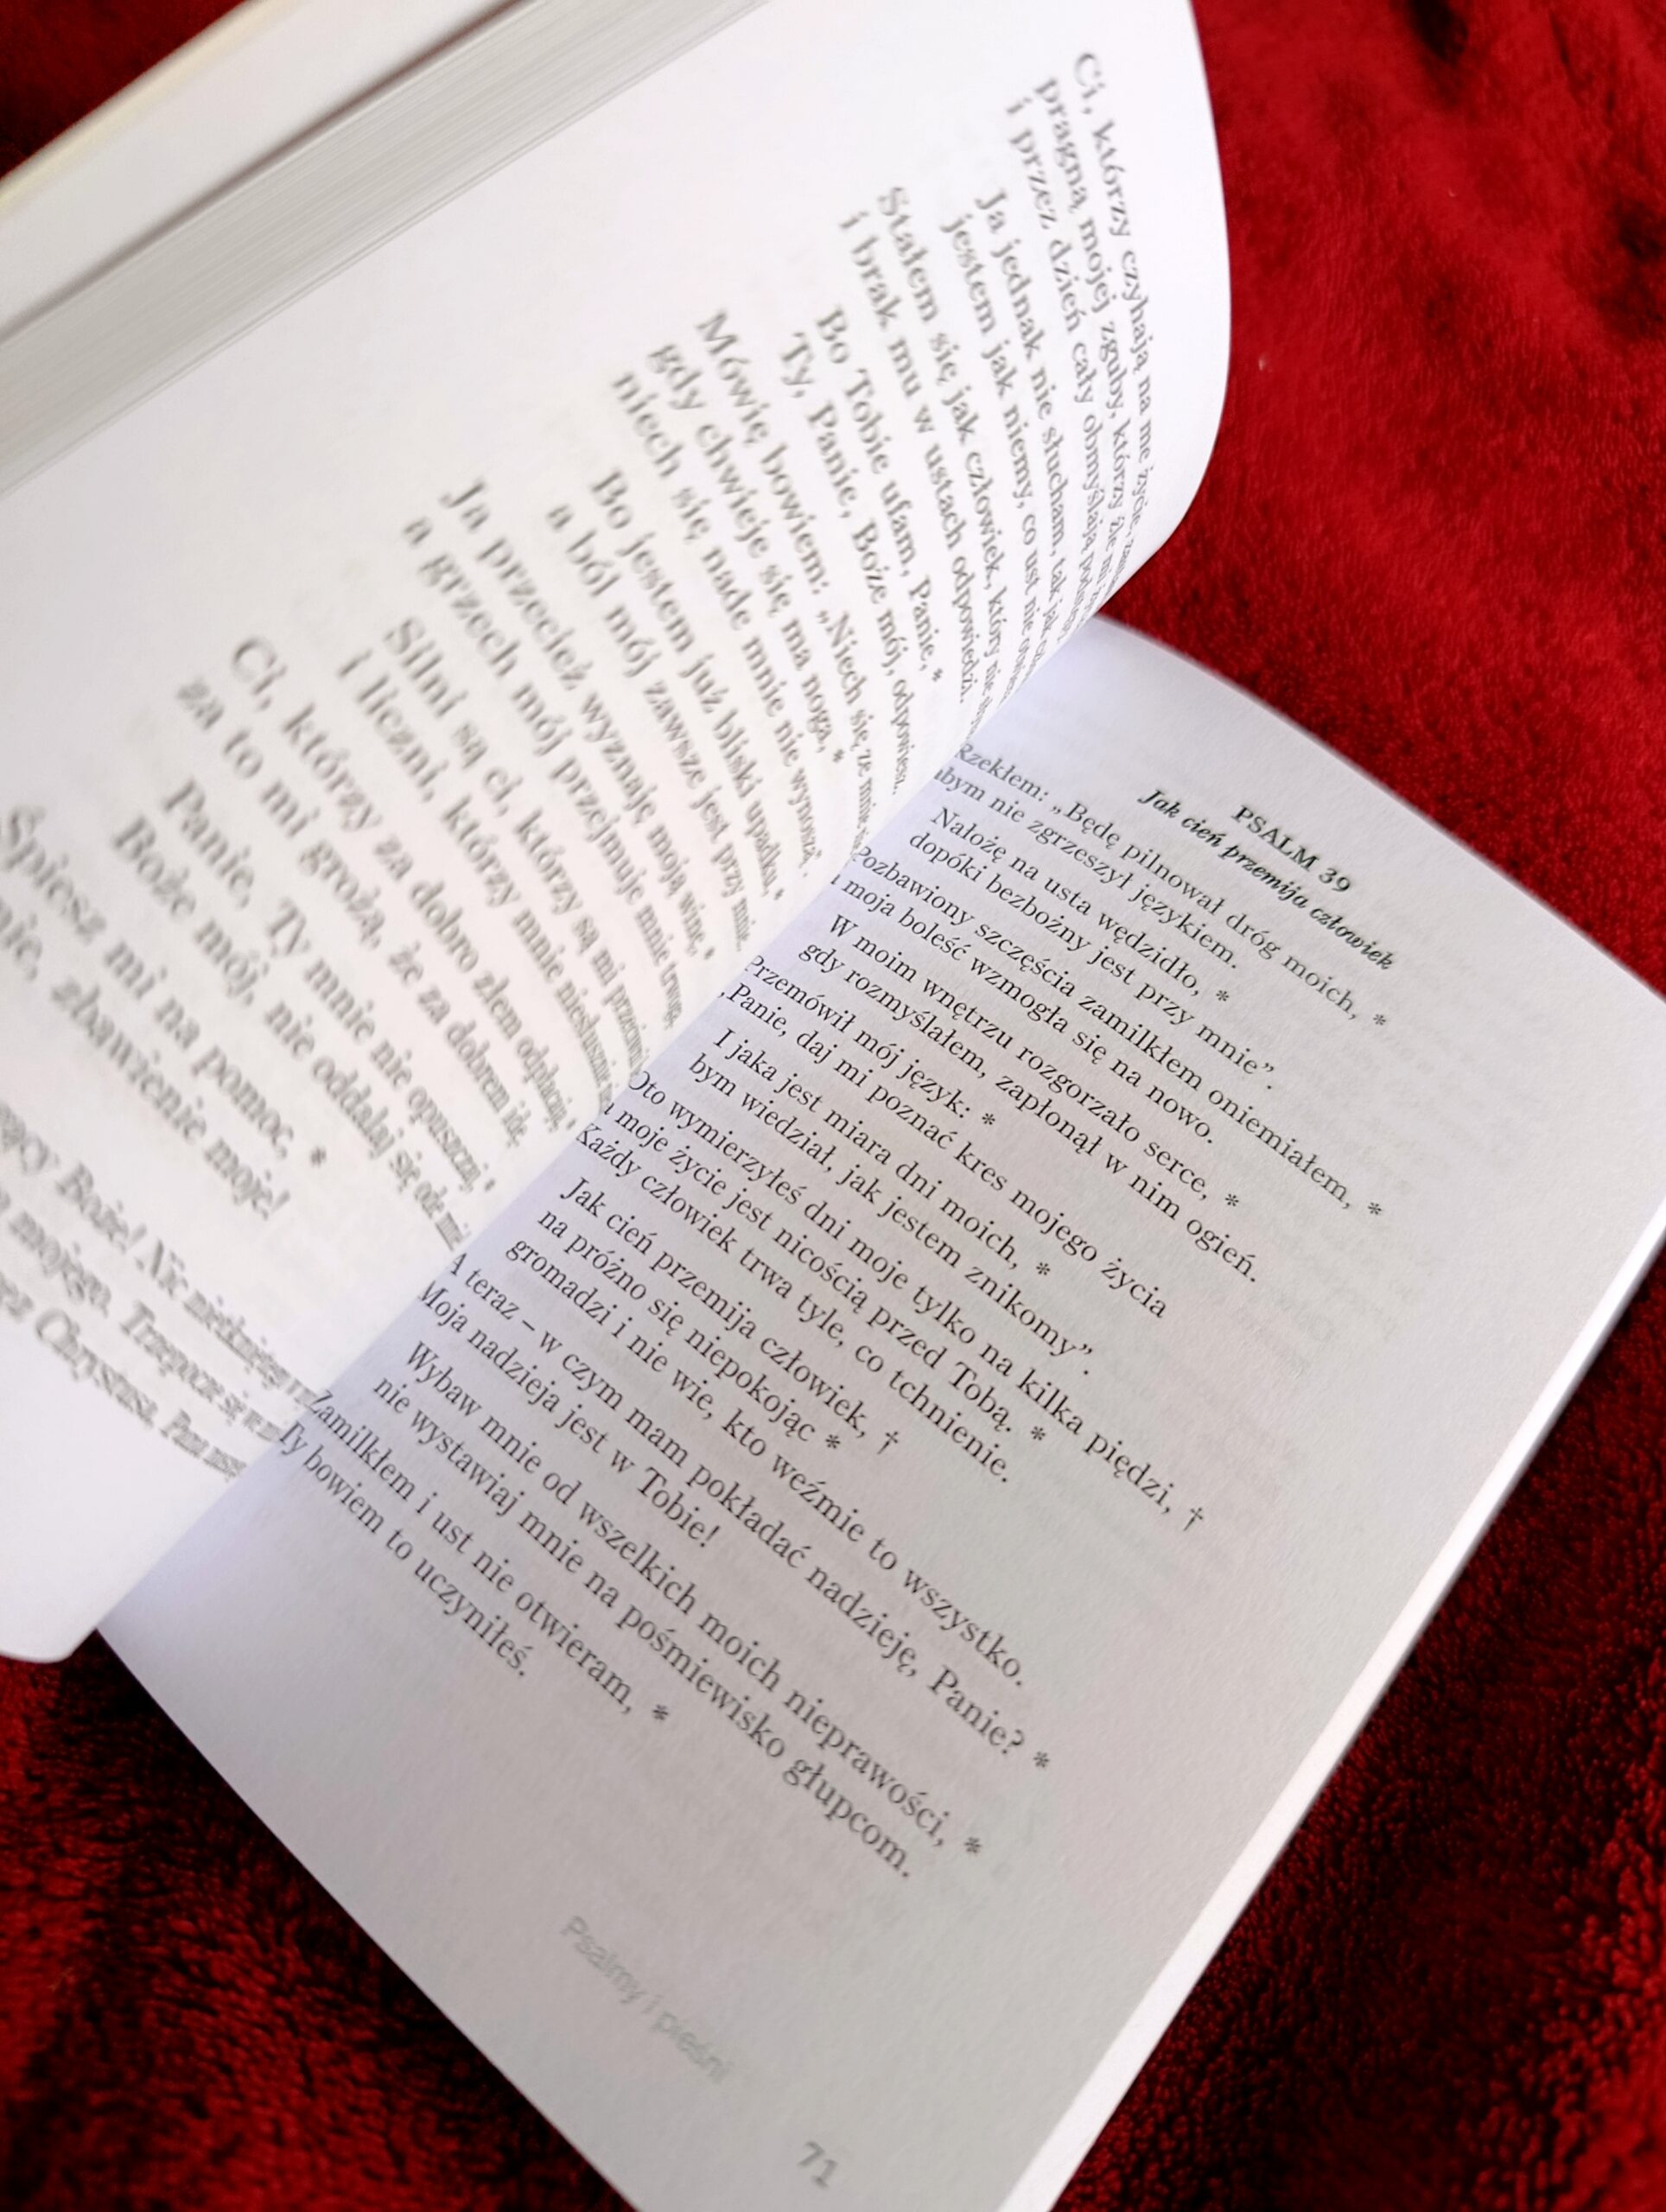 Ci, którzy czyhają na me życie,
pragną mojej zguby, którzy źle mi
i przez dzień cały obmyślają
Ja jednak nie słucham, tak jak
jestem jak niemy, co ust nie
Stałem się jak człowiek, który nie
i brak mu w ustach odpowiedzi.
Bo Tobie ufam, Panie, *
Ty, Panie, Boże mój, odpowiesz.
Mówię bowiem: „Niech się ze mnie
gdy chwieje się ma noga, *
niech się nade mnie nie wynoszą”.
Bo jestem już bliski upadku, *
a ból mój zawsze jest przy mnie.
Ja przecież wyznaję moją winę, *
a grzech mój przejmuje mnie trwogą.
Silni są ci, którzy są mi przeciwni
i liczni, którzy mnie niesłusznie
Ci, którzy za dobro złem odpłacają, *
za to mi grożą, że za dobrem idę.
Panie, Ty mnie nie opuszczaj, *
Boże mój, nie oddalaj się ode mnie
Śpiesz mi na pomoc, *
zbawienie moje!
Boże! Nic nietkniętego
mojego. Troszcz się
Chrystusa, Pana
PSALM 39
Jak cień przemija człowiek
Rzekłem: „Będę pilnował dróg moich, *
abym nie zgrzeszył językiem.
Nałożę na usta wędzidło, *
dopóki bezbożny jest przy mnie”.
Pozbawiony szczęścia zamilkłem oniemiałem, *
a moja boleść wzmogła się na nowo.
W moim wnętrzu rozgorzało serce, *
gdy rozmyślałem, zapłonął w nim ogień.
Przemówił mój język: *
„Panie, daj mi poznać kres mojego życia
I jaka jest miara dni moich, *
bym wiedział, jak jestem znikomy”.
Oto wymierzyłeś dni moje tylko na kilka piędzi, †
a moje życie jest nicością przed Tobą. *
Każdy człowiek trwa tyle, co tchnienie.
Jak cień przemija człowiek, †
na próżno się niepokojąc *
gromadzi i nie wie, kto weźmie to wszystko.
A teraz – w czym mam pokładać nadzieję, Panie? *
Moja nadzieja jest w Tobie!
Wybaw mnie od wszelkich moich nieprawości, *
nie wystawiaj mnie na pośmiewisko głupcom.
Zamilkłem i ust nie otwieram, *
Ty bowiem to uczyniłeś.
Psalmy i pieśni
71